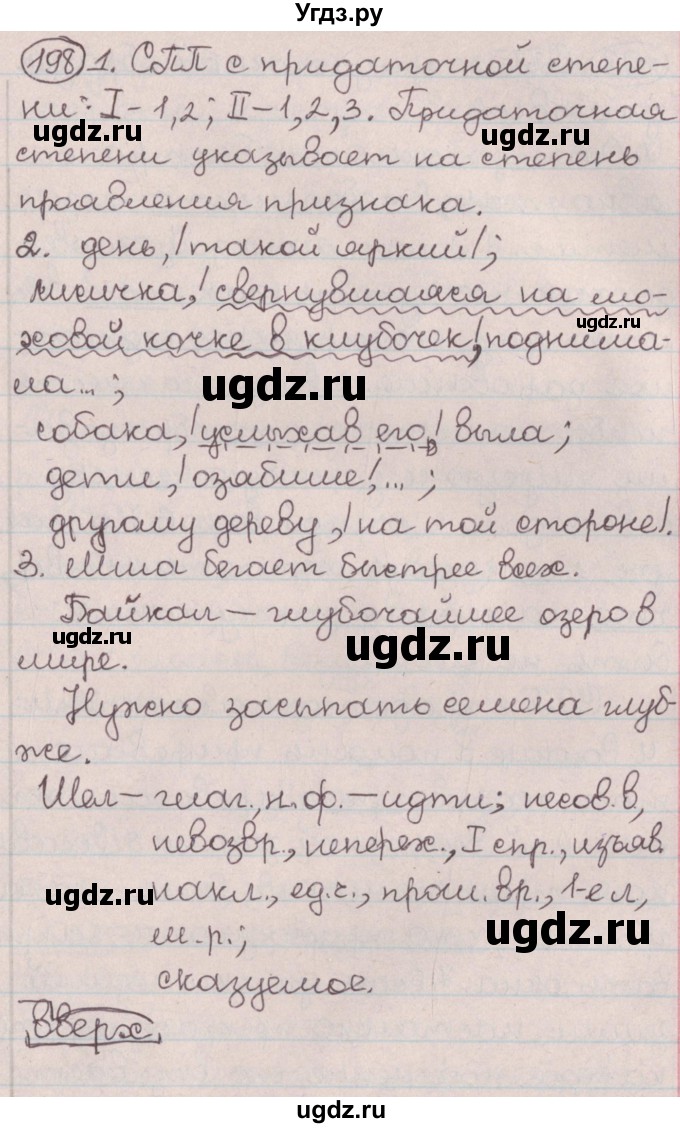 Угдз.ру
198 1. СПП с придаточной степе-
ни: I – 1, 2; II – 1, 2, 3. Придаточная
степени указывает на степень
проявления признака.
2. день, | такой яркий |;
лисичка, | свернувшаяся на мо-
ugdz.ru
ховой кочке в клубочек |, поднима-
ugdz.ru
ла...;
собака, | услыхав его, | выла;
дети, | озябшие |, ...;
другому дереву, | на той стороне |.
3. Миша бегает быстрее всех.
Байкал – глубочайшее озеро в
ugdz.ru ugdz.ru
мире.
Нужно засыпать семена глуб-
же.
Шел – глаг., н. ф. – идти; несов. в,
невозвр., непереж., I спр., изъяв.
ugdz.ru
накл., ед. ч., прош. вр., 1-е л,
м. р.;
ugdz.ru
сказуемое.
вверх
ugdz.ru